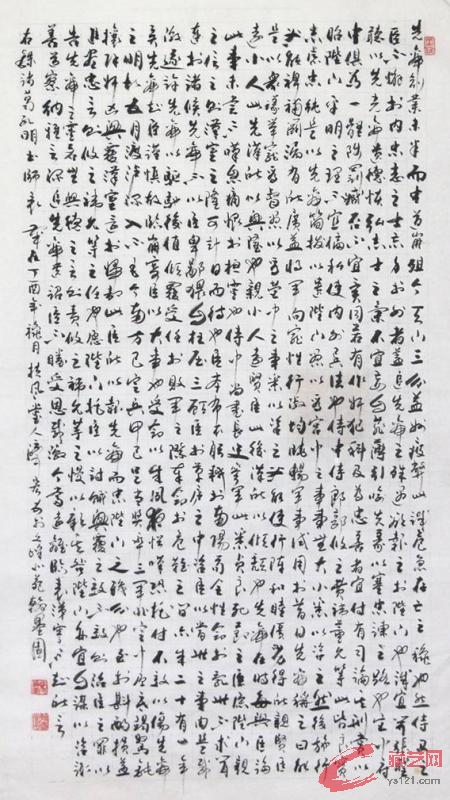 先帝創業未半而中道崩殂今天下三分益州疲弊此誠危急存亡之秋也然侍卫之
臣不懈於內忠志之士忘身於外者蓋追先帝之殊遇欲報之於陛下也誠宜開張聖
聽以光先帝遺德恢弘志士之氣不宜妄自菲薄引喻失義以塞忠諫之路也宮中府
中俱為一體陟罰臧否不宜異同若有作奸犯科及為忠善者宜付有司論其刑賞以
昭陛下平明之理不宜偏私使內外異法也侍中侍郎郭攸之費禕董允等此皆良實
志慮忠純是以先帝簡拔以遺陛下愚以為宮中之事事無大小悉以咨之然後施行
必能裨補闕漏有所廣益將軍向寵性行淑均曉暢軍事試用於昔日先帝稱之曰能
是以眾議舉寵為督愚以為營中之事悉以咨之必能使行陣和睦優劣得所親賢臣
遠小人此先漢所以興隆也親小人遠賢臣此後漢所以傾頹也先帝在時每與臣論
此事未嘗不嘆息痛恨於桓靈也侍中尚書長史參軍此悉貞良死節之臣願陛下親
之信之則漢室之隆可計日而待也臣本布衣躬耕於南陽苟全性命於亂世不求聞
達於諸侯先帝不以臣卑鄙猥自枉屈三顧臣於草廬之中諮臣以當世之事由是感
激遂許先帝以驅馳後值傾覆受任於敗軍之際奉命於危難之間爾來二十有一年
矣先帝知臣謹慎故臨崩寄臣以大事也受命以來夙夜憂嘆恐託付不效以傷先帝
之明故五月渡瀘深入不毛今南方已定兵甲已足當獎率三軍北定中原庶竭駑鈍
攘除奸凶興復漢室還於舊都此臣所以報先帝而忠陛下之職分也至於斟酌損益
進盡忠言則攸之禕允等之任也願陛下託臣以討賊興復之效不效則治臣之罪以
告先帝之靈若無興德之言則責攸之禕允等之慢以彰其咎陛下亦宜自謀以諮諏
善道察納雅言深追先帝遺詔臣不勝受恩感激今當遠離臨表涕零不知所言
右錄諸葛孔明出師表 歲在丁酉年月扶風堂人書於小苑翰墨園
藏艺网